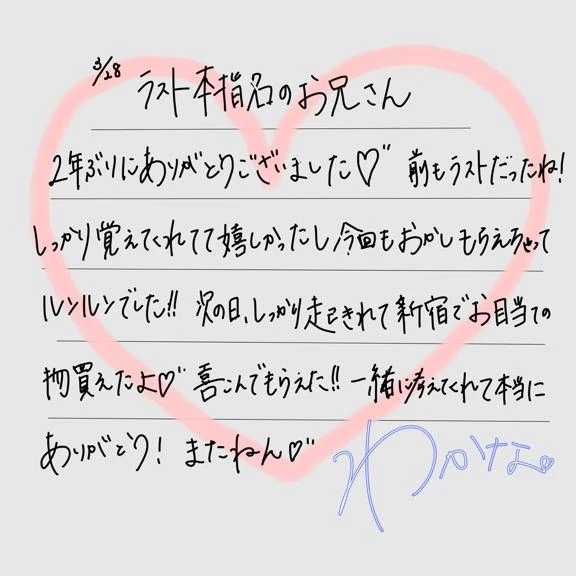 3/28
ラスト本指名のお兄さん
2年ぶりにありがとうございました♡゛ 前もラストだったね!
しっかり覚えてくれてて嬉しかったし今回もおかしもらえちゃって
ルンルンでした!! 次の日、しっかり起きれて新宿でお目当ての
物買えたよ♡゛ 喜こんでもらえた!! 一緒に考えてくれて本当に
ありがとう! またねん♡゛
わかな♡